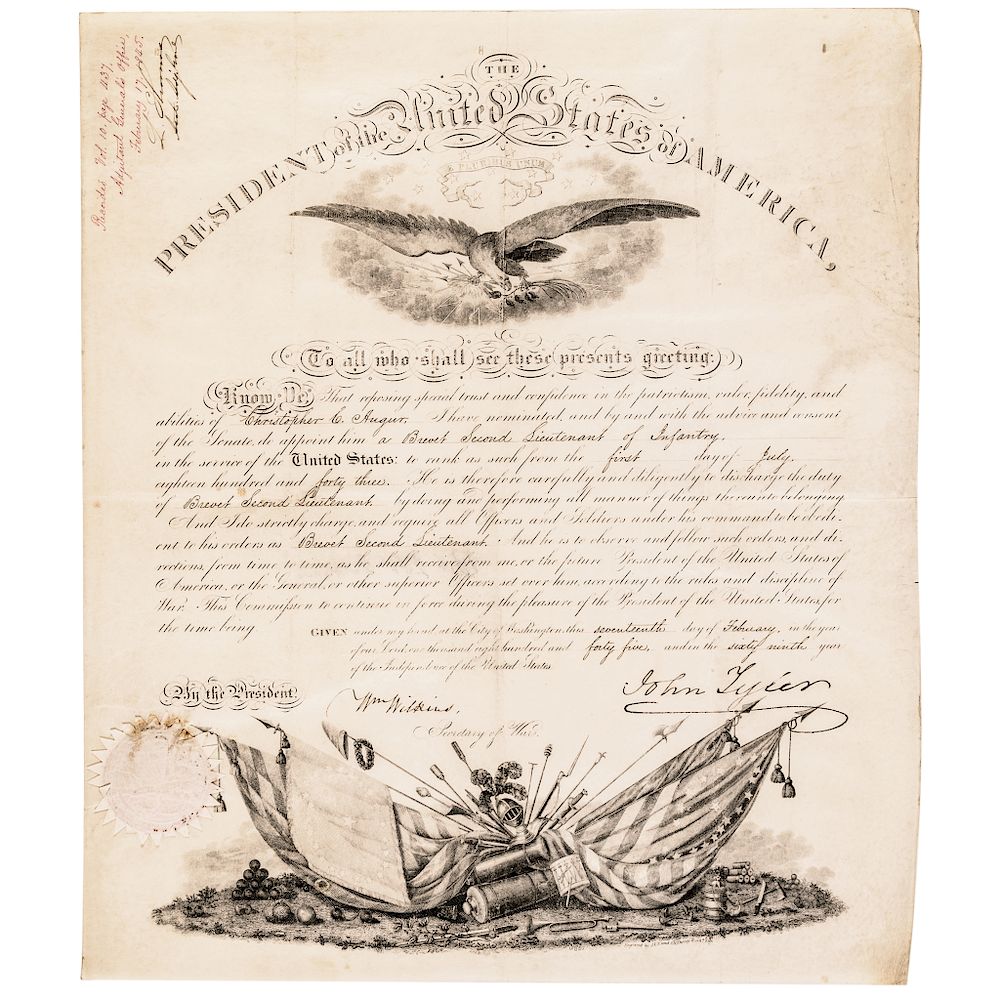 Recorded Vol. 10. page 1137.
Adjutant General's Office,
February 17, 1845.
THE
PRESIDENT of the United States of AMERICA,
E PLURIBUS UNUM
To all who shall see these presents greeting:
Know Ye, That reposing special trust and confidence in the patriotism, valor, fidelity, and
abilities of Christopher C. Augur, I have nominated, and by and with the advice and consent
of the Senate, do appoint him a Brevet Second Lieutenant of Infantry,
in the service of the United States: to rank as such from the first day of July,
eighteen hundred and forty three. He is therefore carefully and diligently to discharge the duty
of Brevet Second Lieutenant by doing and performing all manner of things thereunto belonging.
And I do strictly charge, and require all Officers and Soldiers under his command to be obedi-
ent to his orders as Brevet Second Lieutenant. And he is to observe and follow such orders, and di-
rections, from time to time, as he shall receive from me, or the future President of the United States of
America, or the General, or other superior Officers set over him, according to the rules and discipline of
War. This Commission to continue in force during the pleasure of the President of the United States, for
the time being.
GIVEN under my hand, at the City of Washington, this seventeenth day of February, in the year
of our Lord, one thousand eight hundred and forty five, and in the sixty ninth year
of the Independence of the United States.
By the President,
John Tyler
Wm Wilkins,
Secretary of War.